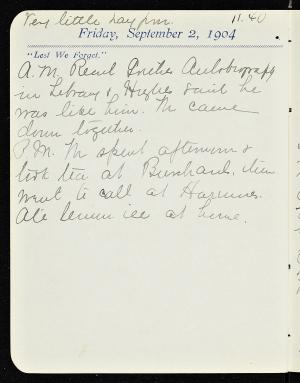 Very little hay fever. 11.40
Friday, September 2, 1904
"Lest We Forget."
A.M. Read Goethe's Autobiography
in Library & Hughes said he
was like him. M came
down together.
P.M. M spent afternoon &
took tea at then
went to call at
Ate lemon ice at home.